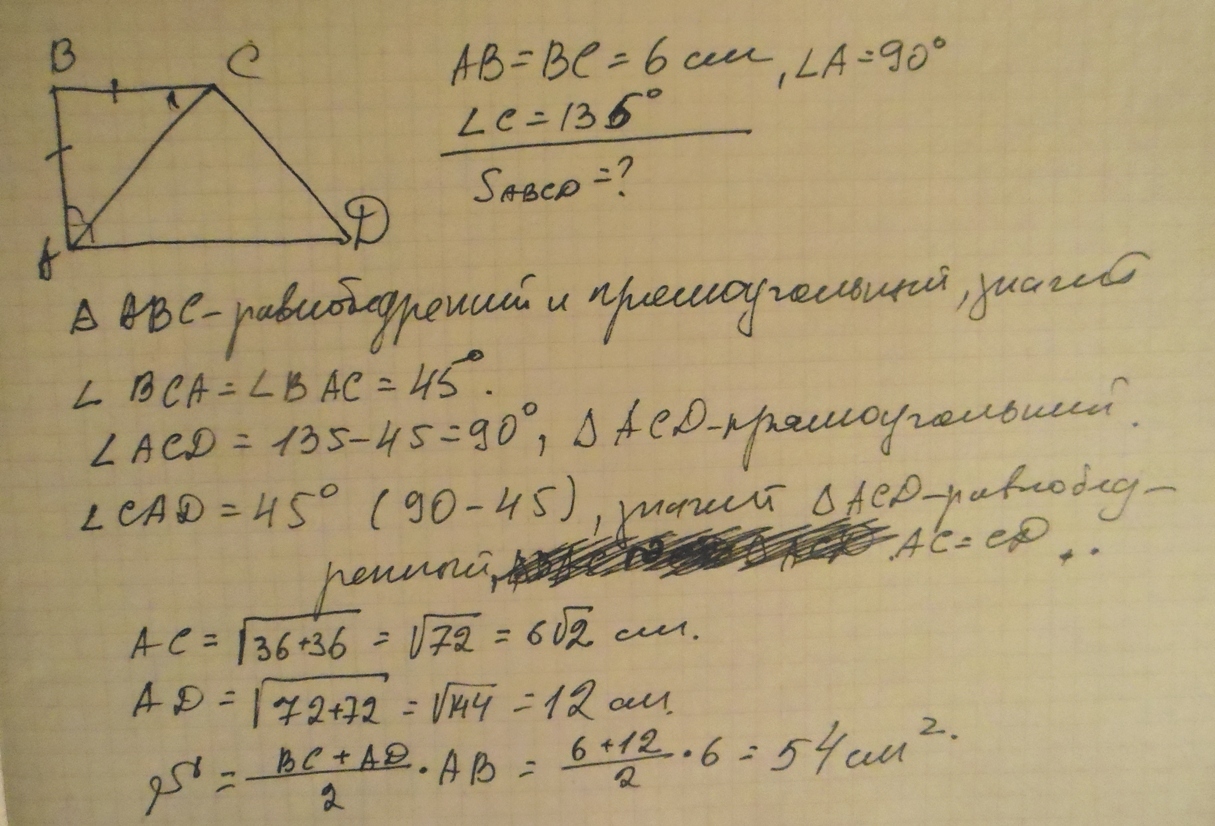 B C
AB = BC = 6 см, ∠A = 90°
∠C = 135°
S ABCD = ?
A D
Δ ABC - равнобедренний и прямоугольный, значит
∠ BCA = ∠ BAC = 45°.
∠ ACD = 135 - 45 = 90°, Δ ACD - прямоугольний.
∠ CAD = 45° (90 - 45), значит Δ ACD - равнобед-
ренный, AC = CD.
AC = √36+36 = √72 = 6√2 см.
AD = √72+72 = √144 = 12 см.
S = BC + AD / 2 · AB = 6 + 12 / 2 · 6 = 54 см².